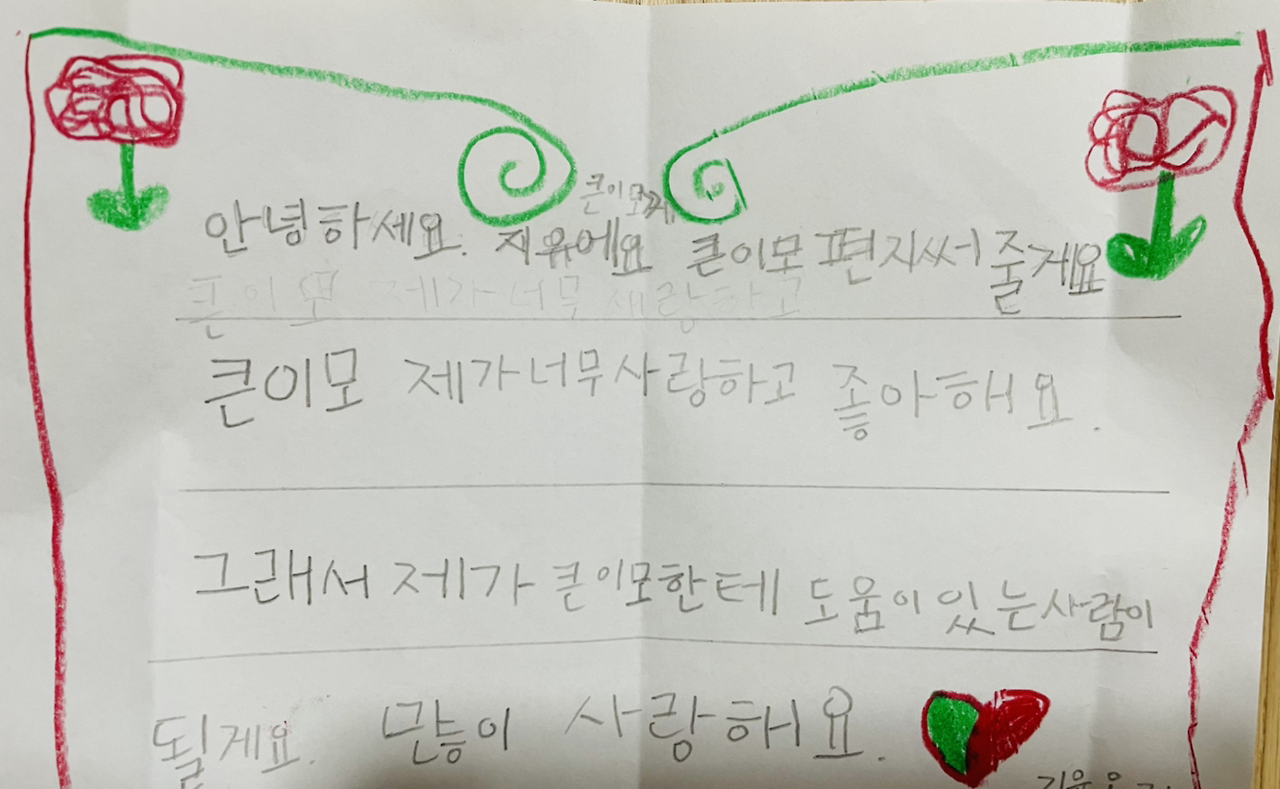 큰이모께
안녕하세요. 지유에요 큰이모 편지써 줄게요
큰이모 제가 너무 사랑하고
큰이모 제가 너무 사랑하고 좋아해요.
그래서 제가 큰이모한테 도움이 있는 사람이
될게요. 많이 사랑해요.